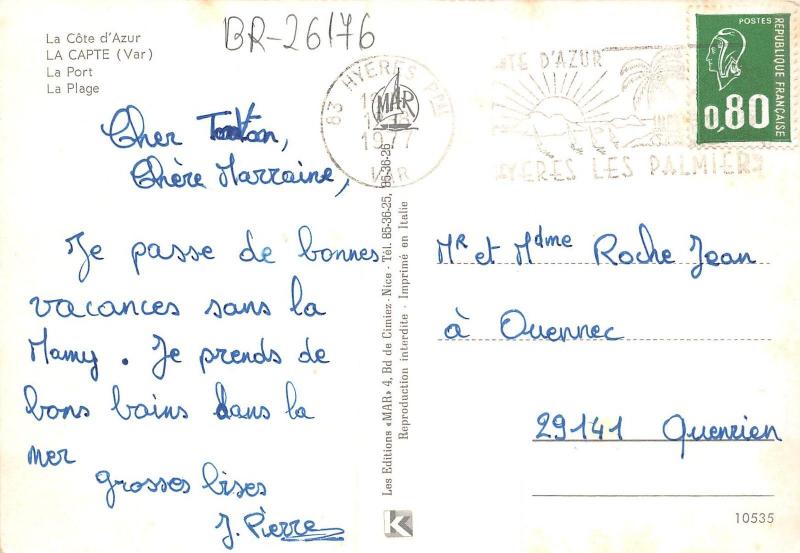 La Côte d'Azur
LA CAPTE (Var)
La Port
La Plage
BR-26176
83 HYERES PPAL
MAR
1977
VAR
TE D'AZUR
HYERES LES PALMIERS
POSTES
REPUBLIQUE FRANÇAISE
0,80
Cher Tonton,
Chère Marraine,
Je passe de bonnes
vacances sans la
Mamy. Je prends de
bons bains dans la
mer
grosses bises
J. Pierre
Les Editions «MAR» 4, Bd de Cimiez - Nice - Tél. 85-36-25, 85-36-26
Reproduction interdite - Imprimé en Italie
K
Mr et Mdme Roche Jean
à Quennec
29141 Querrien
10535